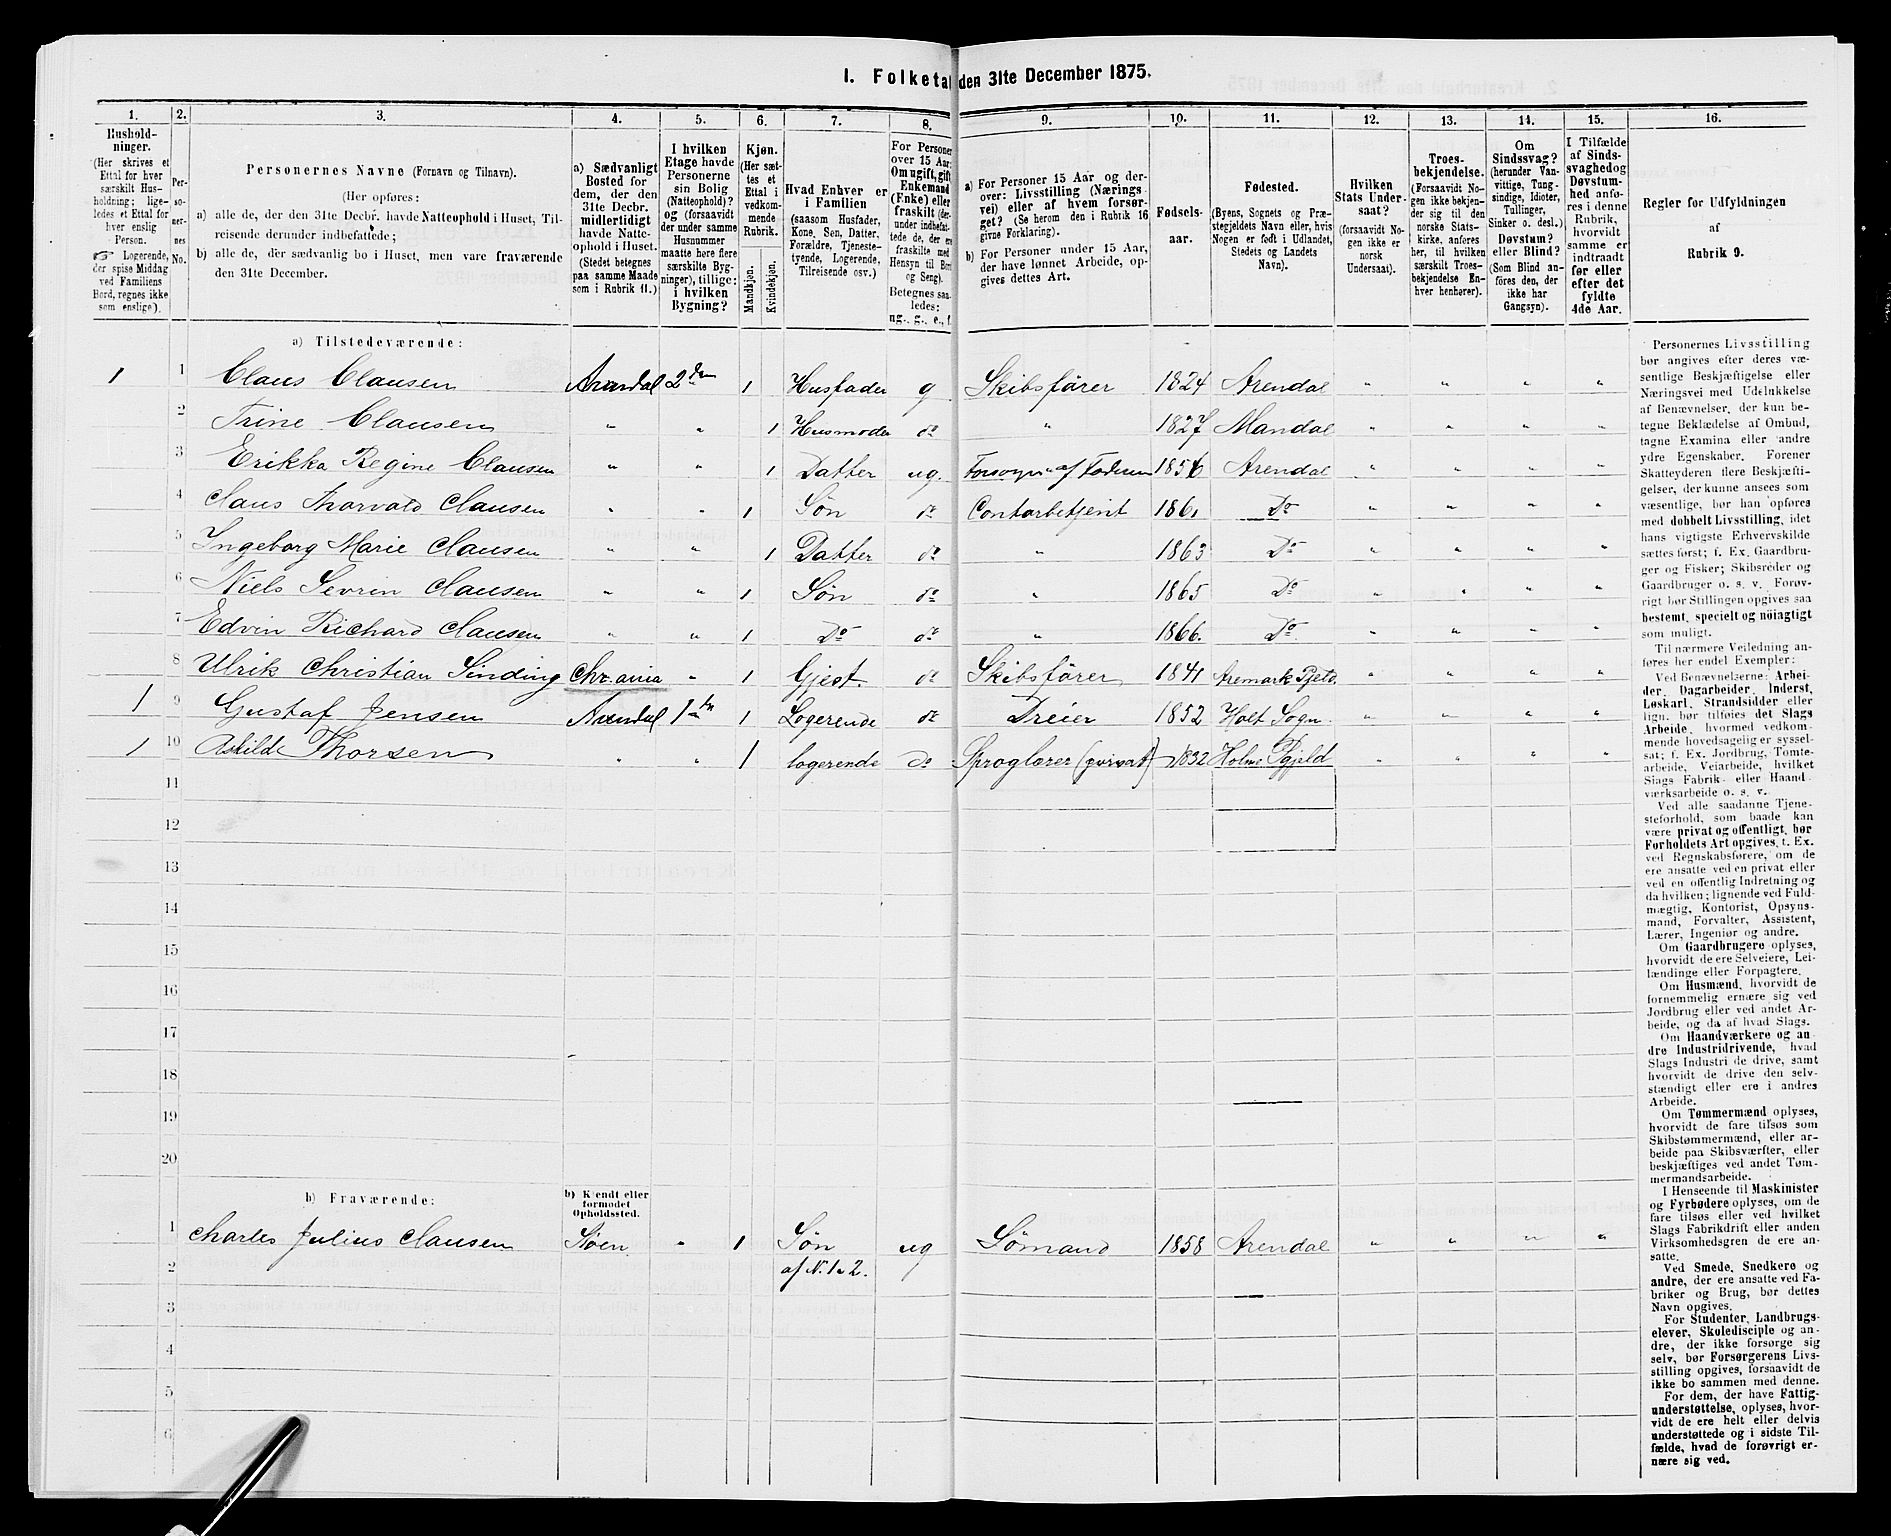 1. Folketal den 31te December 1875.
1. 2. 3. 4. 5. 6. 7. 8. 9. 10. 11. 12. 13. 14. 15. 16.
Hushold-
ninger.
(Her skrives et
Ettal for hver
særskilt Hus-
holdning; lige-
ledes et Ettal for
hver enslig
Person.
☞ Logerende,
der spise Middag
ved Familiens
Bord, regnes ikke
som enslige).
Per-
so-
ner-
nes
No.
Personernes Navne (Fornavn og Tilnavn).
(Her opføres:
a) alle de, der den 31te Decbr. havde Natteophold i Huset, Til-
reisende derunder indbefattede;
b) alle de, der sædvanlig bo i Huset, men vare fraværende
den 31te December.
a) Sædvanligt
Bosted for
dem, der den
31te Decbr.
midlertidigt
havde Natte-
ophold i Huset.
(Stedet betegnes
paa samme Maade
som i Rubrik 11.)
I hvilken
Etage havde
Personerne
sin Bolig
(Natteophold)?
og (forsaavidt
der under samme
Husnummer
maatte høre flere
særskilte Byg-
ninger), tillige:
i hvilken
Bygning?
Kjøn.
(Her sæt-
tes et
Ettal i
vedkom-
mende
Rubrik.
Mandkjøn.
Kvindekjøn.
Hvad Enhver er
i Familien
(saasom Husfader,
Kone, Søn, Datter,
Forældre, Tjeneste-
tyende, Logerende,
Tilreisende osv.)
For Personer
over 15 Aar:
Om ugift, gift,
Enkemand
(Enke) eller
fraskilt (der-
under indbefat-
tede de, der ere
fraskilte med
Hensyn til Bord
og Seng).
Betegnes saa-
ledes:
ug., g., e., f.
a) For Personer 15 Aar og der-
over: Livsstilling (Nærings-
vei) eller af hvem forsør-
get? (Se herom den i Rubrik 16
givne Forklaring).
b) For Personer under 15 Aar,
der have lønnet Arbeide, op-
gives dettes Art.
Fødsels-
aar.
Fødested.
(Byens, Sognets og Præ-
stegjeldets Navn eller, hvis
Nogen er født i Udlandet,
Stedets og Landets
Navn).
Hvilken
Stats Under-
saat?
(forsaavidt No-
gen ikke er
norsk
Undersaat).
Troes-
bekjendelse.
(Forsaavidt No-
gen ikke bekjen-
der sig til den
norske Stats-
kirke, anføres
her, til hvilken
særskilt Troes-
bekjendelse En-
hver henhører).
Om
Sindssvag?
(herunder Van-
vittige, Tung-
sindige, Idioter,
Tullinger,
Sinker o. desl.)
Døvstum?
eller Blind?
(Som Blind an-
føres den, der
ikke har
Gangsyn).
I Tilfælde
af Sinds-
svaghed og
Døvstum-
hed anfø-
res i denne
Rubrik,
hvorvidt
samme er
indtraadt
før eller
efter det
fyldte
4de Aar.
Regler for Udfyldningen
af
Rubrik 9.
a) Tilstedeværende:
1 1 Claus Clausen Arendal 2den 1 Husfader g Skibsfører 1824 Arendal " " " "
2 Trine Clausen " " 1 Husmoder do " 1827 Mandal " " " "
3 Erikka Regine Clausen " " 1 Datter ug. af Faderen 1856 Arendal " " " "
4 Claus Thorvald Clausen " " 1 Søn do Contorbetjent 1861 Do " " " "
5 Ingeborg Marie Clausen " " 1 Datter do " 1863 Do " " " "
6 Niels Sevrin Clausen " " 1 Søn do " 1865 Do " " " "
7 Edvin Richard Clausen " " 1 Do do " 1866. Do " " " "
8 Ulrik Christian Sinding Chr.ania " 1 Gjest. do Skibsfører 1841 Aremark Pjeld. " " " "
1 9 Gustaf Jensen Arendal 1 1 Logerende do Dreier 1852 Holt Sogn " " " "
1 10 Askilde Thorsen " " 1 logerende do Sproglærer (privat) Holme Pgjeld " " " "
11
12
13
14
15
16
17
18
19
20
b) Fraværende:
b) Kjendt eller
formodet
Opholdssted.
1 Charles Julius Clausen Søen. " 1 Søn ug Sømand 1858 Arendal " " " "
2 af N. 1 a 2.
3
4
5
6
Personernes Livsstilling
bør angives efter deres væ-
sentlige Beskjæftigelse eller
Næringsvei med Udelukkelse
af Benævnelser, der kun be-
tegne Beklædelse af Ombud,
tagne Examina eller andre
ydre Egenskaber. Forener
Skatteyderen flere Beskjæfti-
gelser, der kunne ansees som
væsentlige, bør han opføres
med dobbelt Livsstilling, idet
hans vigtigste Erhvervskilde
sættes først; f. Ex. Gaardbru-
ger og Fisker; Skibsreder og
Gaardbruger o. s. v. Forøv-
rigt bør Stillingen opgives saa
bestemt, specielt og nöiagtigt
som muligt.
Til nærmere Veiledning an-
føres her endel Exempler:
Ved Benævnelserne: Arbei-
der, Dagarbeider, Inderst,
Løskarl, Strandsidder eller
lign. bør tilføies det Slags
Arbeide, hvormed vedkom-
mende hovedsagelig er syssel-
sat; f. Ex. Jordbrug, Tomte-
arbeide, Veiarbeide, hvilket
Slags Fabrik- eller Haand-
værksarbeide o. s. v.
Ved alle saadanne Tjene-
steforhold, som baade kan
være privat og offentligt, bør
Forholdets Art opgives, t. Ex.
ved Regnskabsførere, om de
ere ansatte ved en privat eller
ved en offentlig Indretning og
da hvilken; lignende ved Fuld-
mægtig, Kontorist, Opsyns-
mand, Forvalter, Assistent,
Lærer, Ingeniør og andre.
Om Gaardbrugere oplyses,
hvorvidt de ere Selveiere, Lei-
lændinge eller Forpagtere.
Om Husmænd, hvorvidt de
fornemmelig ernære sig ved
Jordbrug eller ved andet Ar-
beide, og da af hvad Slags.
Om Haandværkere og an-
dre Industridrivende, hvad
Slags Industri de drive, samt
hvorvidt de drive den selv-
stændigt eller ere i andres
Arbeide.
Om Tømmermænd oplyses,
hvorvidt de fare tilsøs som
Skibstømmermænd, eller ar-
beide paa Skibsværfter, eller
beskjæftiges ved andet Tøm-
mermandsarbeide.
I Henseende til Maskinister
og Fyrbødere oplyses, om de
fare tilsøs eller ved hvilket
Slags Fabrikdrift eller anden
Virksomhedsgren de ere an-
satte.
Ved Smede, Snedkere og
andre, der ere ansatte ved Fa-
briker og Brug, bør dettes
Navn opgives.
For Studenter, Landbrugs-
elever, Skoledisciple og an-
dre, der ikke forsørge sig
selv, bør Forsørgerens Livs-
stilling opgives, forsaavidt de
ikke bo sammen med denne.
For dem, der have Fattig-
understøttelse, oplyses, hvor-
vidt de ere helt eller delvis
understøttede og i sidste Til-
fælde, hvad de forøvrigt er-
nære sig ved.